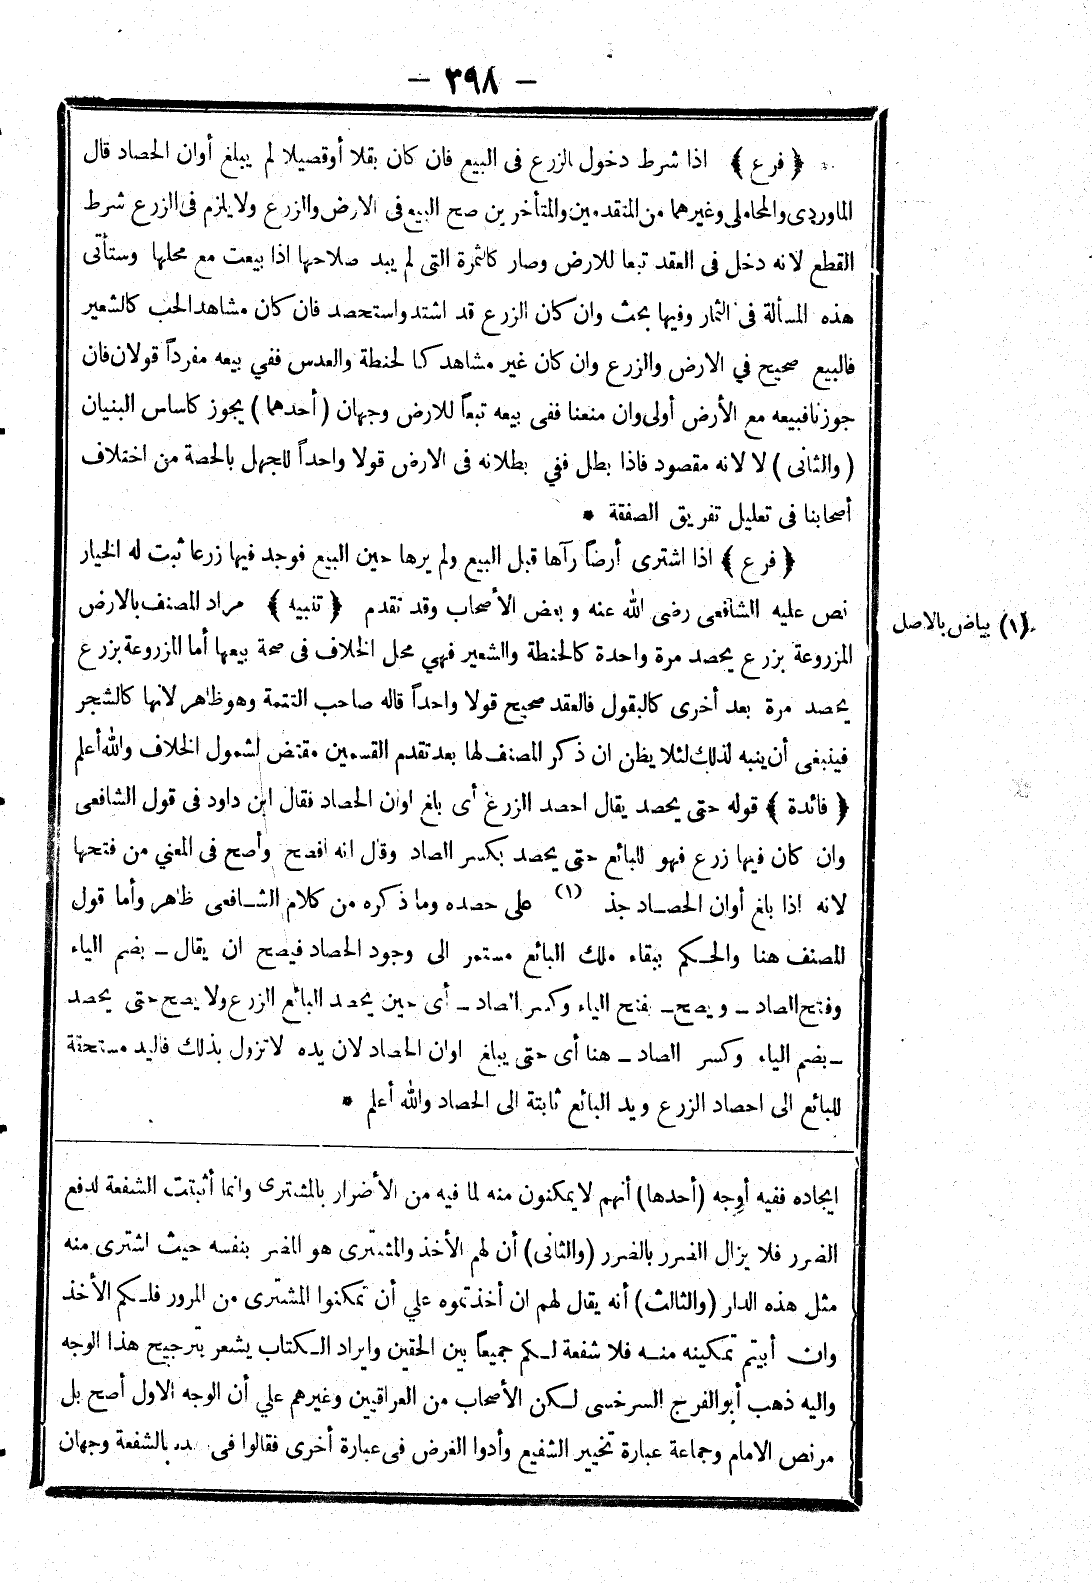 — ٣٩٨ —
* ﴿ فرع ﴾ اذا شرط دخول الزرع فى البيع فان كان بقلا أوقصيلا لم يبلغ أوان الحصاد قال
الماوردى والمحاملى وغيرهما من المتقدمين والمتأخرين صح البيع فى الارض والزرع ولا يلزم فى الزرع شرط
القطع لانه دخل فى العقد تبعا للارض وصار كالثمرة التى لم يبد صلاحها اذا بيعت مع محلها وستأتى
هذه المسألة فى الثمار وفيها بحث وان كان الزرع قد اشتد واستحصد فان كان مشاهد الحب كالشعير
فالبيع صحيح في الارض والزرع وان كان غير مشاهد كالحنطة والعدس ففي بيعه مفرداً قولان فان
جوزنا فبيعه مع الأرض أولى وان منعنا ففى بيعه تبعاً للارض وجهان (أحدهما) يجوز كاساس البنيان
(والثانى) لا لانه مقصود فاذا بطل ففي بطلانه فى الارض قولا واحداً للجهل بالحصة من اختلاف
أصحابنا فى تعليل تفريق الصفقة *
﴿ فرع ﴾ اذا اشترى أرضاً رآها قبل البيع ولم يرها حين البيع فوجد فيها زرعا ثبت له الخيار
نص عليه الشافعى رضى الله عنه وبعض الأصحاب وقد تقدم ﴿ تنبيه ﴾ مراد المصنف بالارض
المزروعة بزرع يحصد مرة واحدة كالحنطة والشعير فهي محل الخلاف فى صحة بيعها أما المزروعة بزرع
يحصد مرة بعد أخرى كالبقول فالعقد صحيح قولا واحداً قاله صاحب التتمة وهو ظاهر لانها كالشجر
فينبغى أن ينبه لذلك لئلا يظن ان ذكر المصنف لها بعد تقدم القسمين مقتض لشمول الخلاف والله أعلم
﴿ فائدة ﴾ قوله حتى يحصد يقال احصد الزرع أى بلغ اوان الحصاد فقال ابن داود فى قول الشافعى
وان كان فيها زرع فهو للبائع حتى يحصد بكسر الصاد وقال انه افصح وأصح فى المعني من فتحها
لانه اذا بلغ أوان الحصاد جذ (١) على حصده وما ذكره من كلام الشافعى ظاهر وأما قول
المصنف هنا والحكم ببقاء ملك البائع مستمر الى وجود الحصاد فيصح ان يقال ــ بضم الياء
وفتح الصاد ــ ويصح ــ بفتح الياء وكسر الصاد ــ أى حين يحصد البائع الزرع ولا يصح حتى يحصد
ــ بضم الياء وكسر الصاد ــ هنا أى حتى يبلغ اوان الحصاد لان يده لا تزول بذلك فاليد مستحقة
للبائع الى احصاد الزرع ويد البائع ثابتة الى الحصاد والله أعلم *
(١) بياض بالاصل
ايجاده ففيه أوجه (أحدها) أنهم لا يمكنون منه لما فيه من الأضرار بالمشترى وانما أثبتت الشفعة لدفع
الضرر فلا يزال الضرر بالضرر (والثانى) أن لهم الأخذ والمشترى هو المضر بنفسه حيث اشترى منه
مثل هذه الدار (والثالث) أنه يقال لهم ان أخذتموه علي أن تمكنوا المشترى من المرور فلكم الأخذ
وان أبيتم تمكينه منه فلا شفعة لكم جميعاً بين الحقين وايراد الكتاب يشعر بترجيح هذا الوجه
واليه ذهب أبو الفرج السرخسى لكن الأصحاب من العراقيين وغيرهم علي أن الوجه الاول أصح بل
مرنص الامام وجماعة عبارة تخيير الشفيع وأدوا الغرض فى عبارة أخرى فقالوا فى بالشفعة وجهان